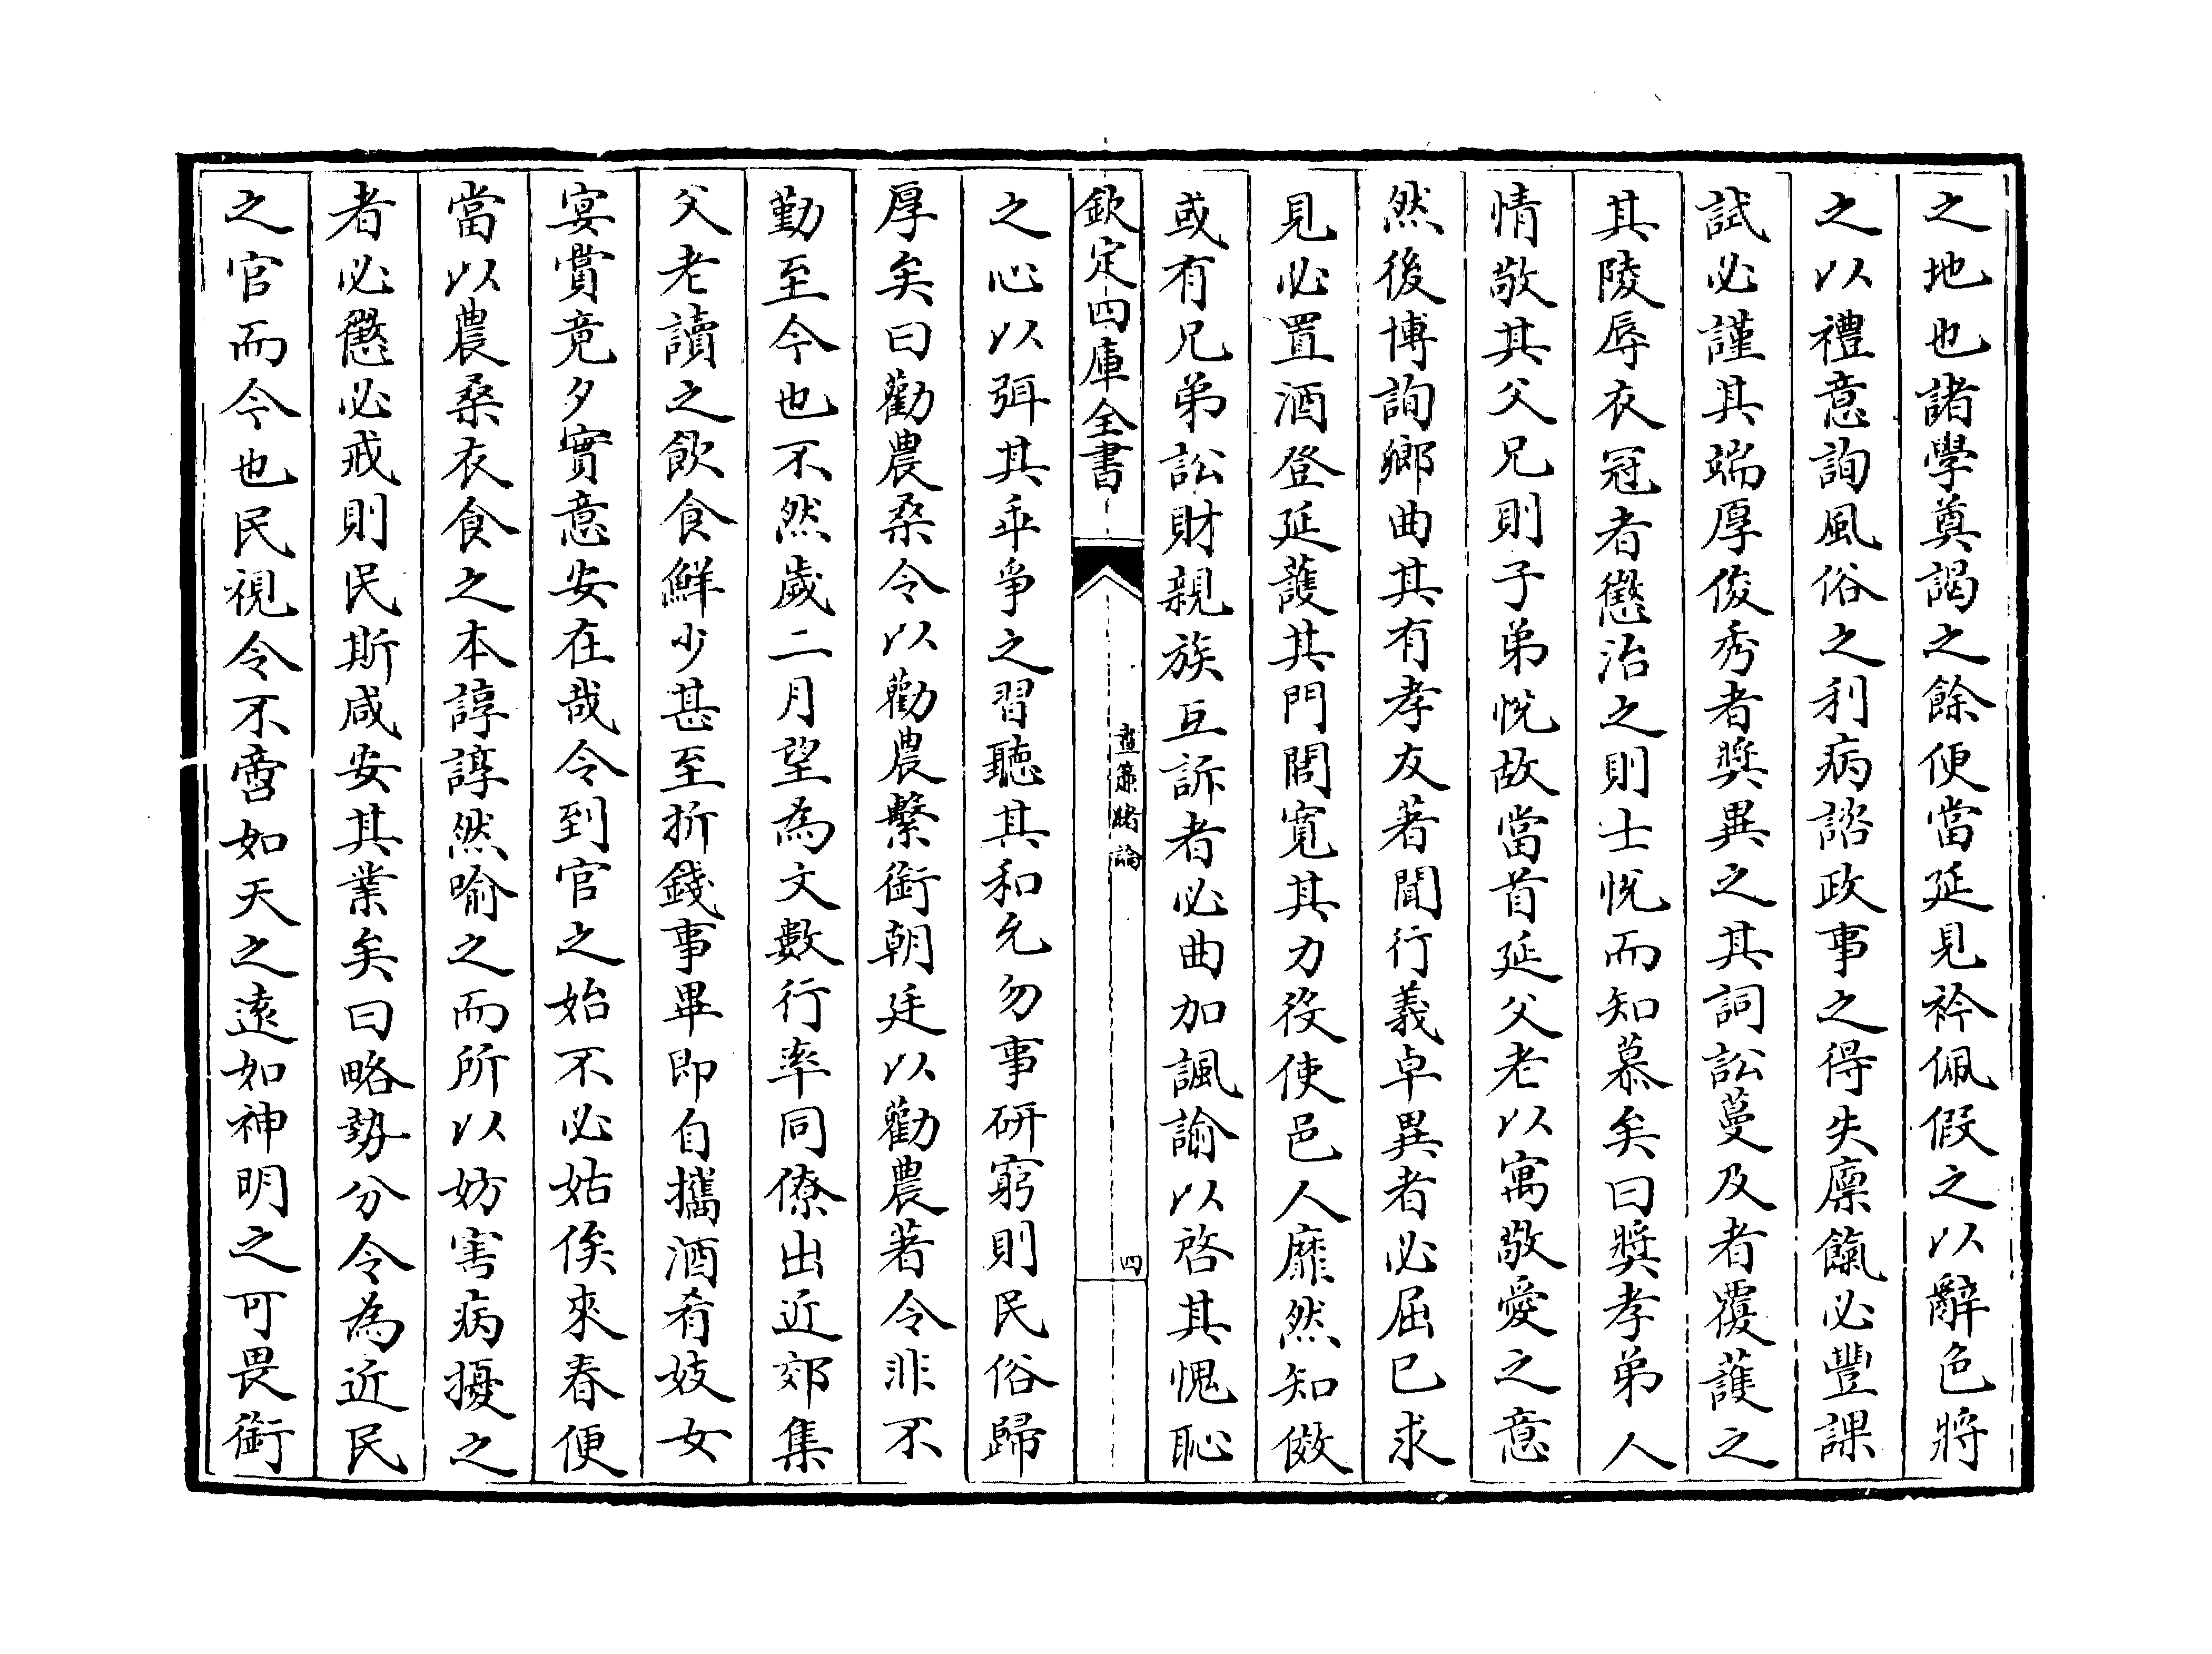 之地也諸學奠謁之餘便當延見衿佩假之以辭色將
之以禮意詢風俗之利病諮政事之得失廩餼必豐課
試必謹其端厚俊秀者奬異之其詞訟蔓及者覆護之
其陵辱衣冠者懲治之則士恱而知慕矣曰奬孝弟人
情敬其父兄則子弟恱故當首延父老以寓敬愛之意
然後博詢鄉曲其有孝友著聞行義卓異者必屈已求
見必置酒登延護其門閭寛其力役使邑人靡然知倣
或有兄弟訟財親族互訴者必曲加諷諭以啓其愧恥
欽定四庫全書
晝簾緒論
四
之心以弭其乖爭之習聽其和允勿事研窮則民俗歸
厚矣曰勸農桑令以勸農繫銜朝廷以勸農著令非不
勤至今也不然歲二月望為文數行率同僚出近郊集
父老讀之飲食鮮少甚至折錢事畢即自攜酒肴妓女
宴賞竟夕實意安在哉令到官之始不必姑俟來春便
當以農桑衣食之本諄諄然喻之而所以妨害病擾之
者必懲必戒則民斯咸安其業矣曰略勢分令為近民
之官而今也民視令不啻如天之逺如神明之可畏銜